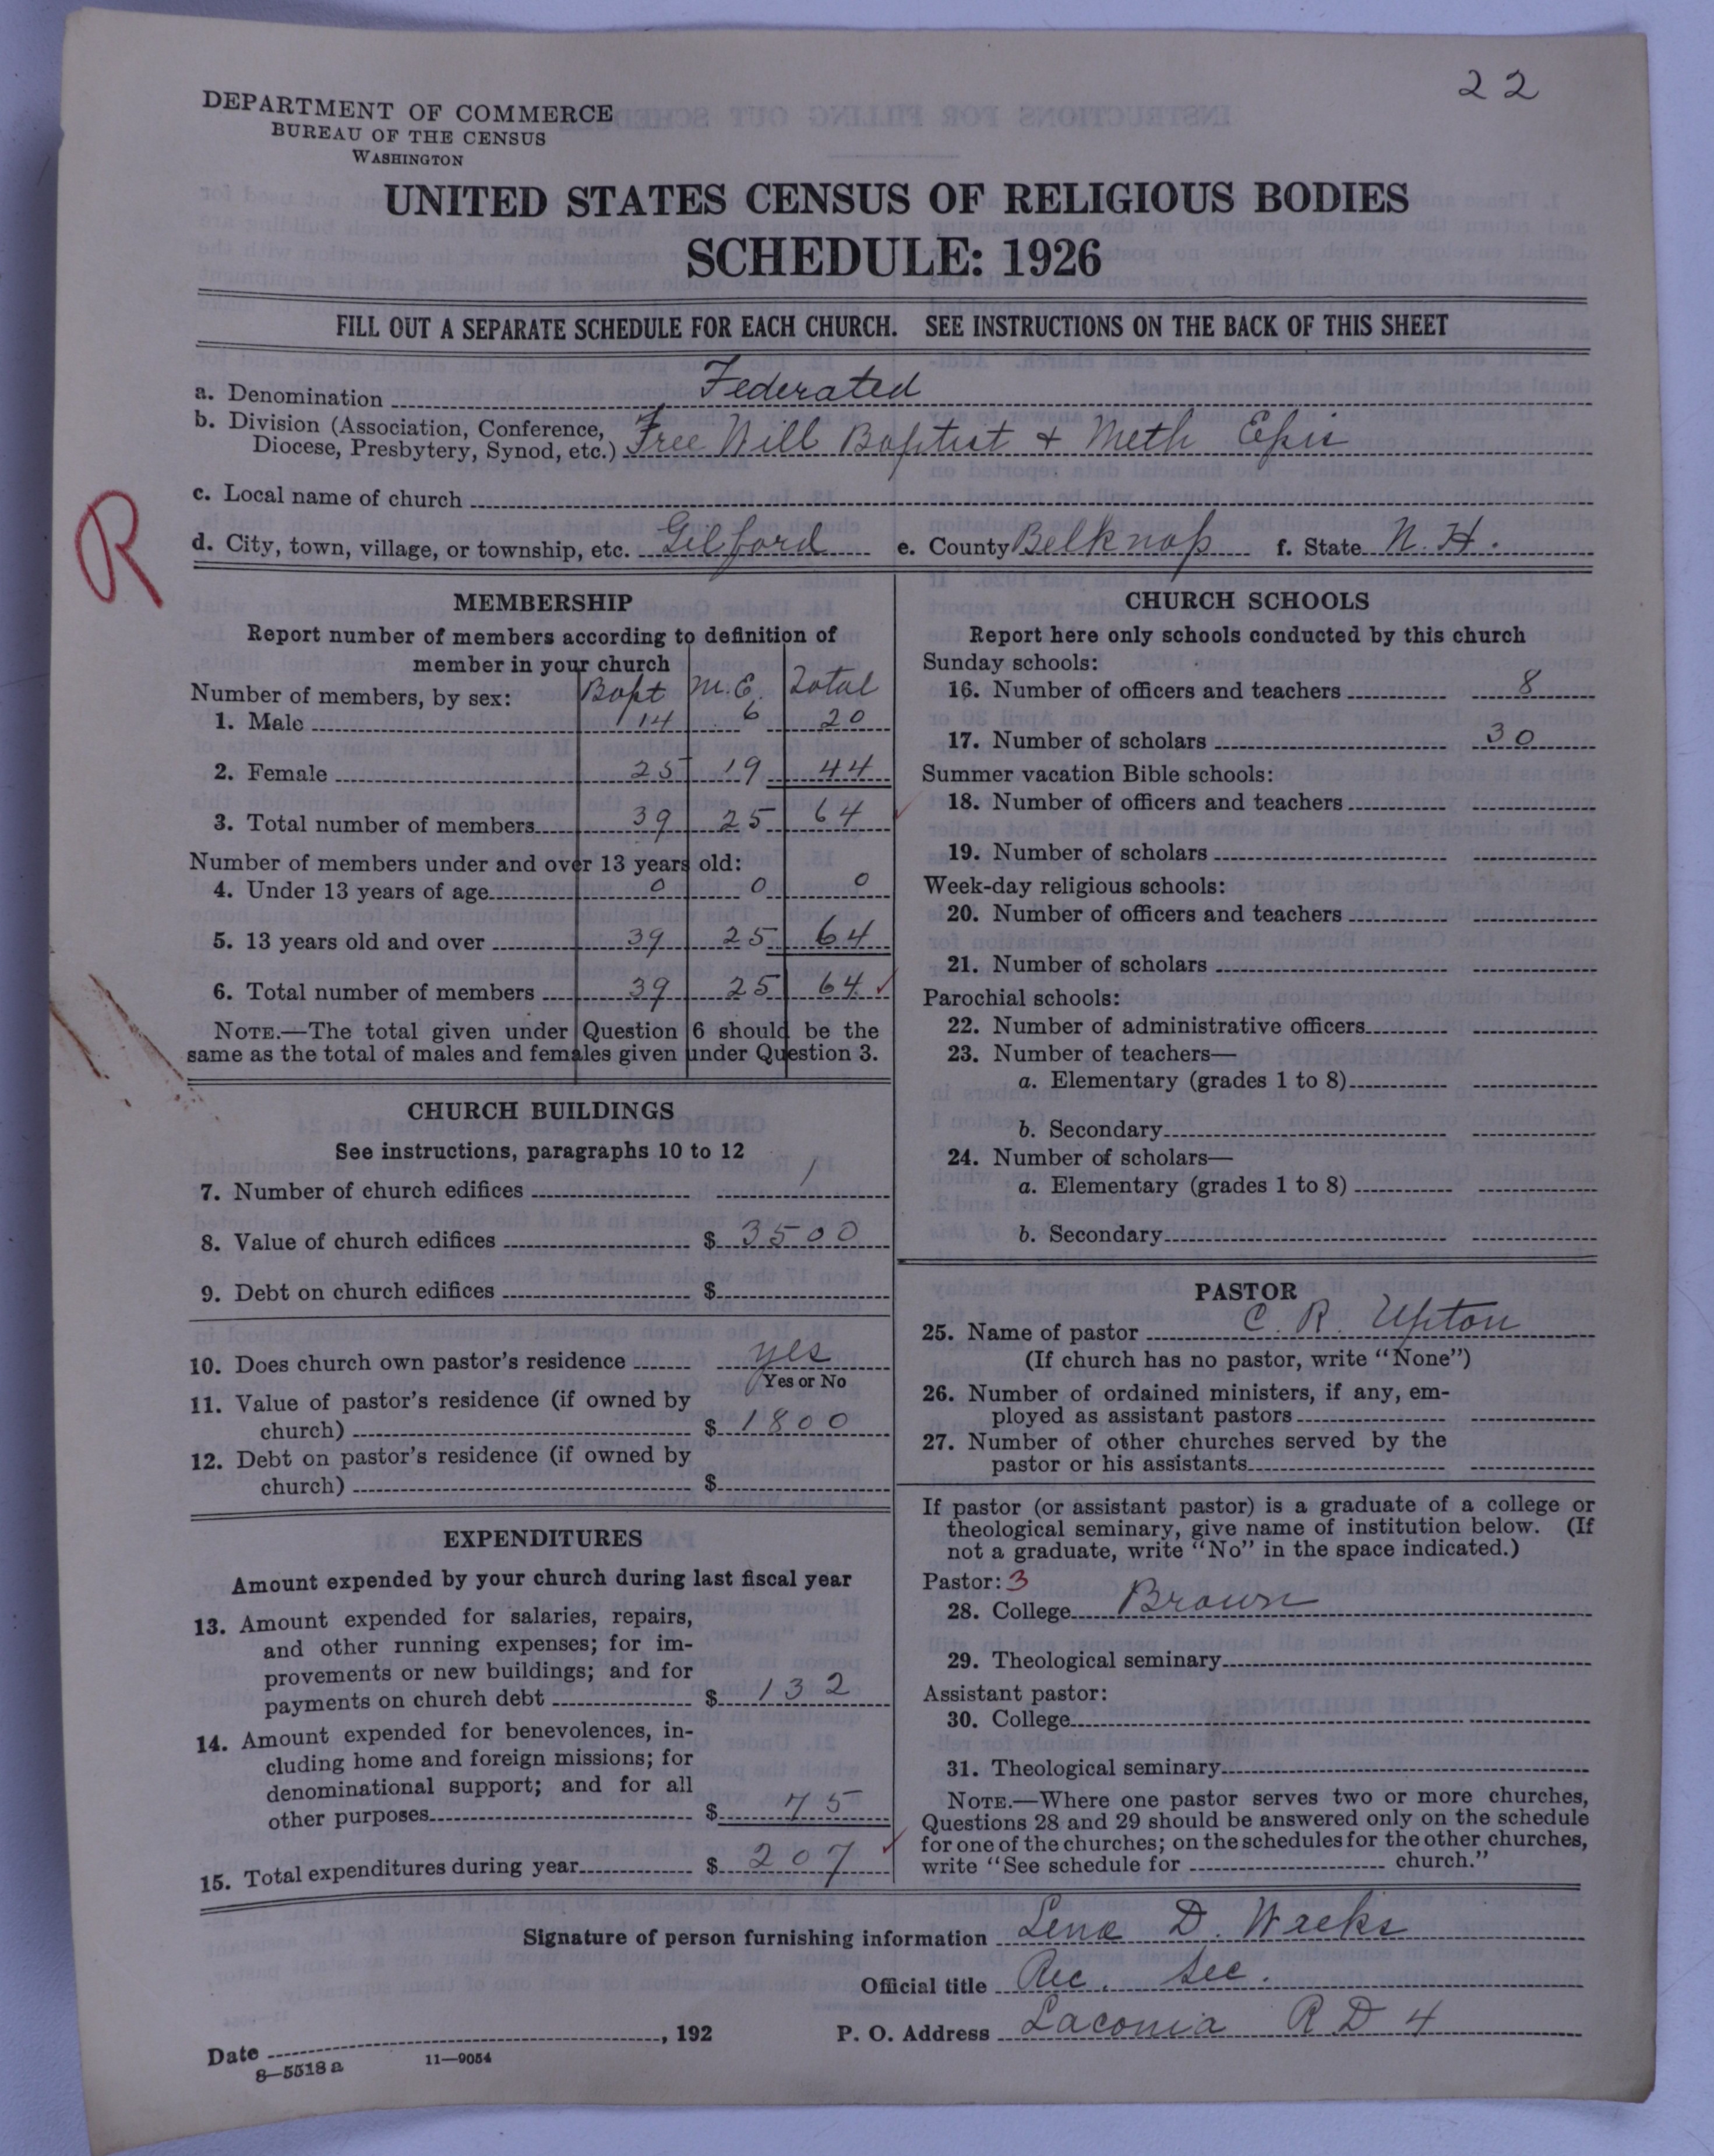 22
DEPARTMENT OF COMMERCE
BUREAU OF THE CENSUS
WASHINGTON
UNITED STATES CENSUS OF RELIGIOUS BODIES
SCHEDULE: 1926
FILL OUT A SEPARATE SCHEDULE FOR EACH CHURCH. SEE INSTRUCTIONS ON THE BACK OF THIS SHEET
a. Denomination Federated
b. Division (Association, Conference,
Diocese, Presbytery, Synod, etc.) Free Will Baptist + Meth Epis
c. Local name of church
R
d. City, town, village, or township, etc. Gilford e. County Belknap f. State N. H.
MEMBERSHIP
Report number of members according to definition of
member in your church
Number of members, by sex: Bapt M.E. Total
1. Male 14 6 20
2. Female 25 19 44
3. Total number of members 39 25 64
Number of members under and over 13 years old:
4. Under 13 years of age 0 0 0
5. 13 years old and over 39 25 64
6. Total number of members 39 25 64 ✓
NOTE.—The total given under Question 6 should be the
same as the total of males and females given under Question 3.
CHURCH BUILDINGS
See instructions, paragraphs 10 to 12
7. Number of church edifices 1
8. Value of church edifices $ 3500
9. Debt on church edifices $
10. Does church own pastor's residence yes
Yes or No
11. Value of pastor's residence (if owned by
church) $ 1800
12. Debt on pastor's residence (if owned by
church) $
EXPENDITURES
Amount expended by your church during last fiscal year
13. Amount expended for salaries, repairs,
and other running expenses; for im-
provements or new buildings; and for
payments on church debt $ 132
14. Amount expended for benevolences, in-
cluding home and foreign missions; for
denominational support; and for all
other purposes $ 75
15. Total expenditures during year $ 207 ✓
CHURCH SCHOOLS
Report here only schools conducted by this church
Sunday schools:
16. Number of officers and teachers 8
17. Number of scholars 30
Summer vacation Bible schools:
18. Number of officers and teachers
19. Number of scholars
Week-day religious schools:
20. Number of officers and teachers
21. Number of scholars
Parochial schools:
22. Number of administrative officers
23. Number of teachers—
a. Elementary (grades 1 to 8)
b. Secondary
24. Number of scholars—
a. Elementary (grades 1 to 8)
b. Secondary
PASTOR
25. Name of pastor C. R. Upton
(If church has no pastor, write "None")
26. Number of ordained ministers, if any, em-
ployed as assistant pastors
27. Number of other churches served by the
pastor or his assistants
If pastor (or assistant pastor) is a graduate of a college or
theological seminary, give name of institution below. (If
not a graduate, write "No" in the space indicated.)
Pastor: 3
28. College Brown
29. Theological seminary
Assistant pastor:
30. College
31. Theological seminary
NOTE.—Where one pastor serves two or more churches,
Questions 28 and 29 should be answered only on the schedule
for one of the churches; on the schedules for the other churches,
write "See schedule for church."
Signature of person furnishing information Lena D. Weeks
Official title Rec. Sec.
Date , 192 P. O. Address Laconia R D 4
8—5518 a 11—9054